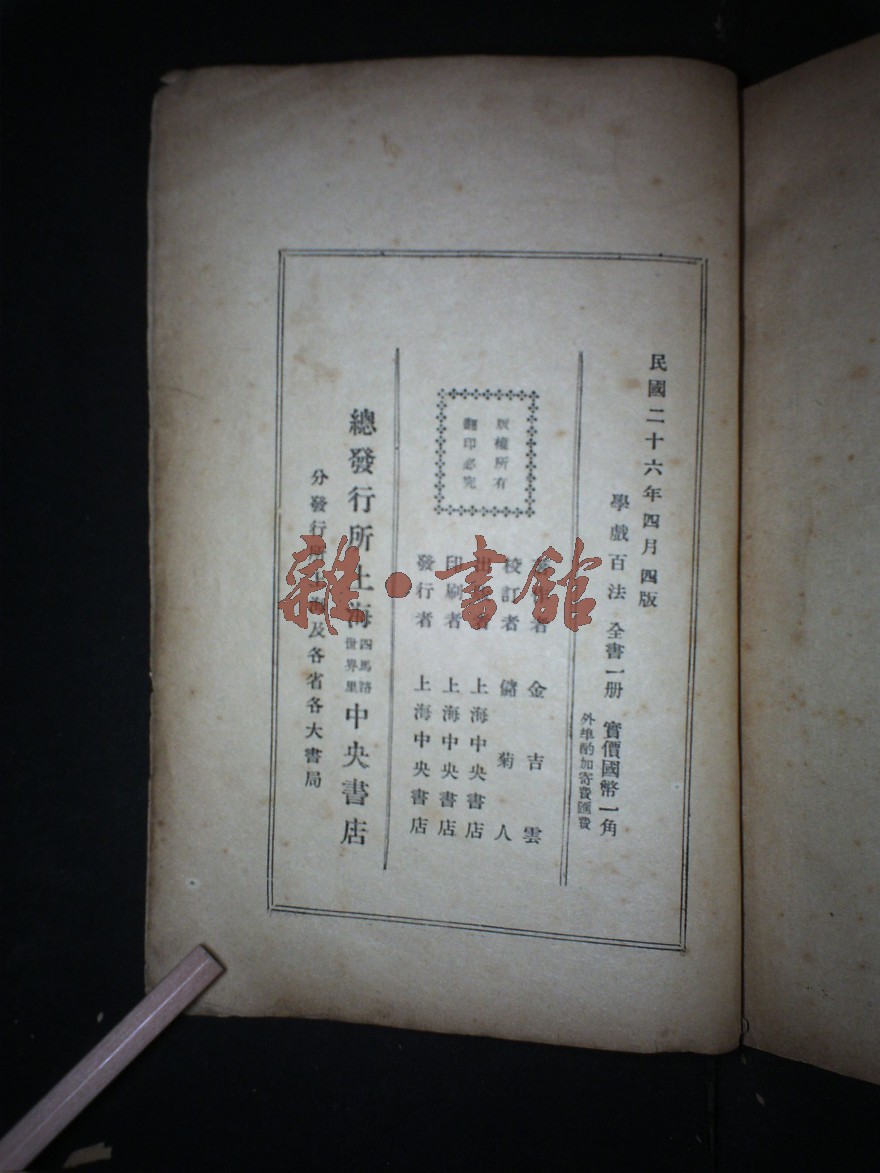 民國二十六年四月四版
學戲百法 全書一册 實價國幣一角
外埠酌加寄費匯費
版權所有
翻印必究
金吉雲
校訂者 儲菊人
出版者 上海中央書店
印刷者 上海中央書店
發行者 上海中央書店
總發行所上海四馬路世界里中央書店
分發行所上海及各省各大書局
雜·書館